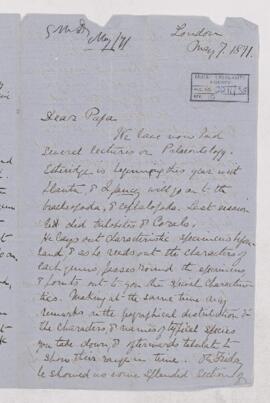 London
May 7. 1871.
May/71
Dear Papa
We have now had
several lectures on Palaeontology.
Etheridge is beginning this year with
Plants, & I fancy will go on to the
brachiopoda, & cephalopoda. Last session
he did trilobites & Corals.
He lays out characteristic specimens before
hand, & as he reads out the characters of
each genus, passes round the specimens
& points out to you the special characteris
tics. Making at the same time any
remarks on the geographical distribution &
the characters, & names of typical species
you take down, & afterwards tabulate to
show their range in time. On Friday
he showed us some splendid sections of